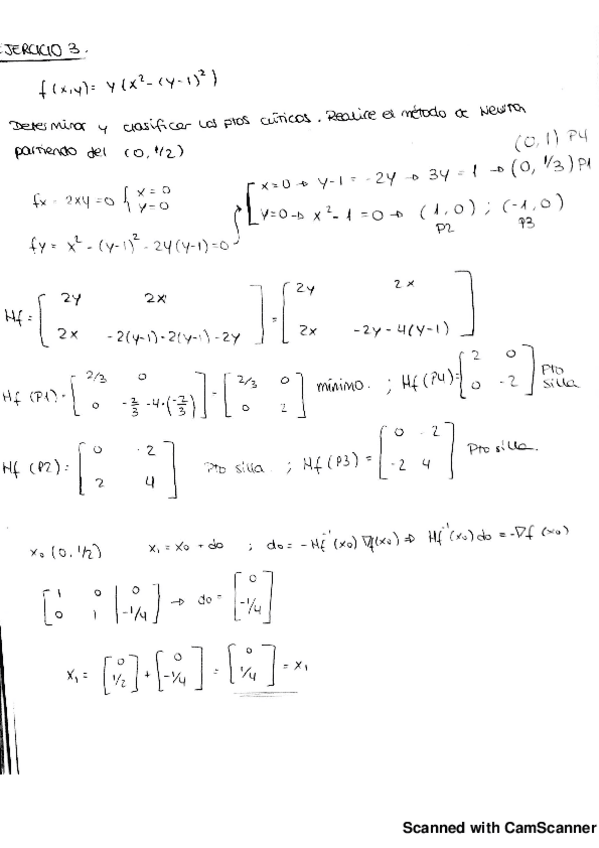 EJERCICIO 3.
f(x,y) = y(x² - (y-1)²)
Determinar y clasificar los ptos críticos. Realice el método de Newton
partiendo del (0, 1/2)
(0,1) P4
fx = 2xy = 0 { x = 0 y = 0
[ x=0 → y-1 = -2y → 3y = 1 → (0, 1/3) P1
y=0 → x² - 1 = 0 → (1,0) ; (-1,0)
P2 P3
fy = x² - (y-1)² - 2y(y-1) = 0
Hf = [ 2y 2x ; 2x -2(y-1) - 2(y-1) - 2y ] = [ 2y 2x ; 2x -2y - 4(y-1) ]
Hf (P1) = [ 2/3 0 ; 0 -2/3 - 4·(-2/3) ] = [ 2/3 0 ; 0 2 ] mínimo. ; Hf (P4) = [ 2 0 ; 0 -2 ] Pto silla
Hf (P2) = [ 0 2 ; 2 4 ] Pto silla ; Hf (P3) = [ 0 -2 ; -2 4 ] Pto silla.
x₀ (0, 1/2) x₁ = x₀ + d₀ ; d₀ = -Hf⁻¹(x₀) ∇f(x₀) ⇒ Hf⁻¹(x₀) d₀ = -∇f (x₀)
[ 1 0 | 0 ; 0 1 | -1/4 ] → d₀ = [ 0 ; -1/4 ]
x₁ = [ 0 ; 1/2 ] + [ 0 ; -1/4 ] = [ 0 ; 1/4 ] = x₁
Scanned with CamScanner